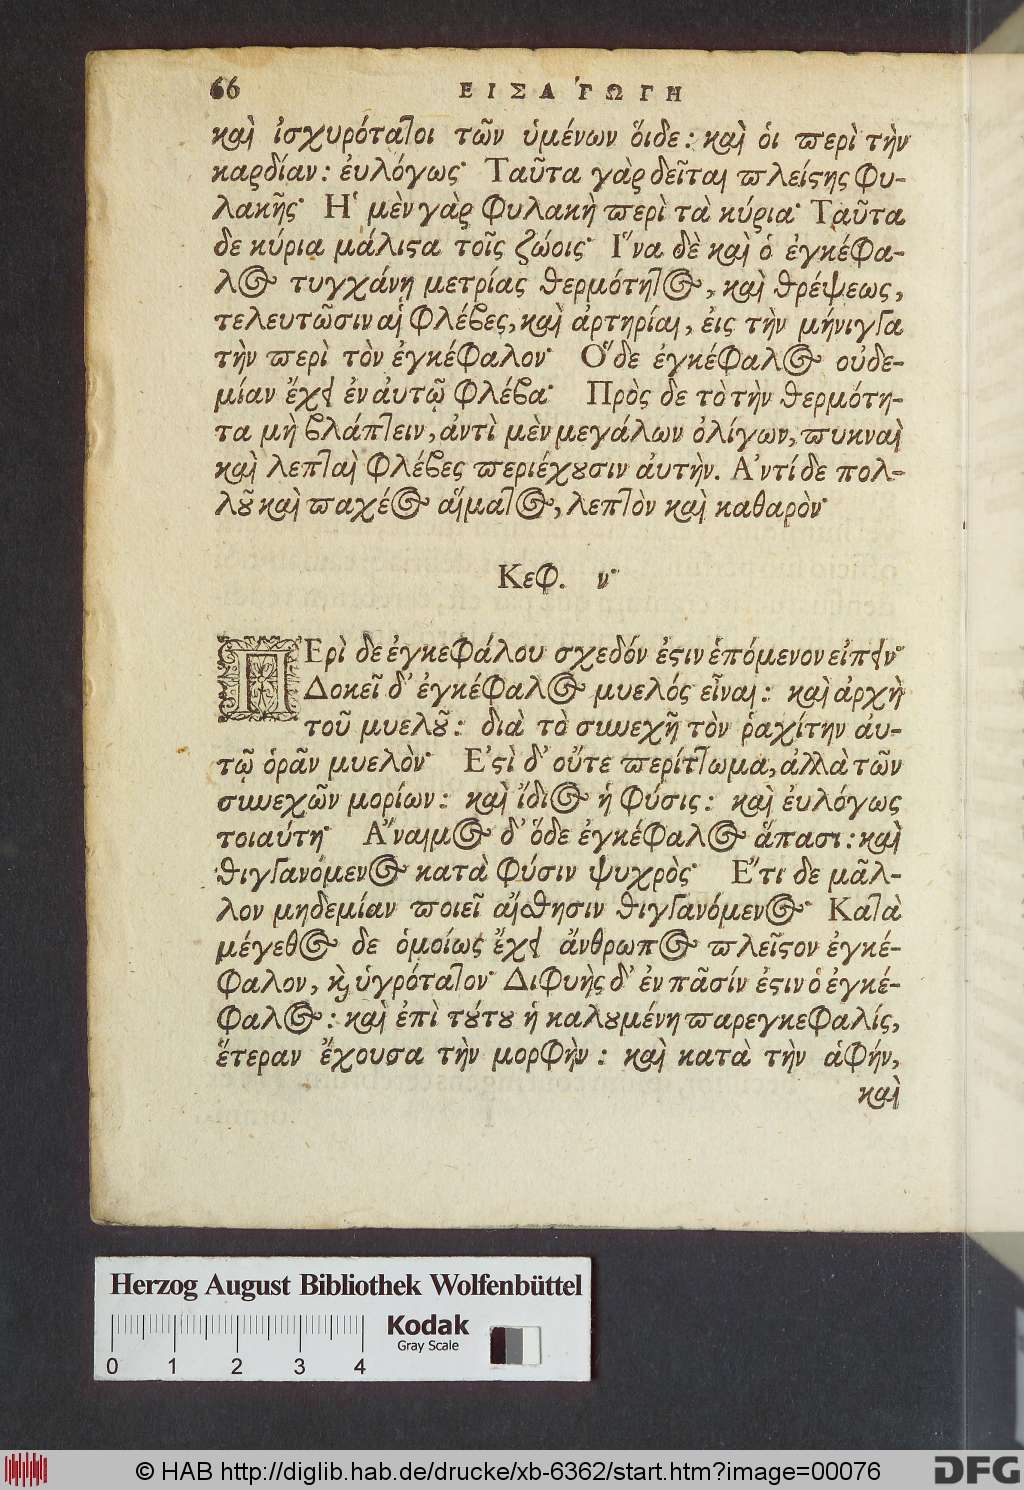 66 ΕΙΣΑΓΩΓΗ
καὶ ἰσχυρότατοι τῶν ὑμένων ὅιδε: καὶ ὁι περὶ τὴν
καρδίαν: ἐυλόγως· Ταῦτα γὰρ δεῖται πλείϛης φυ-
λακῆς· Ἡ μὲν γὰρ φυλακὴ περὶ τὰ κύρια· Ταῦτα
δε κύρια μάλιϛα τοῖς ζώοις· Ἵνα δὲ καὶ ὁ ἐγκέφα-
λος τυγχάνη μετρίας θερμότητος, καὶ θρέψεως,
τελευτῶσιν αἱ φλέβες, καὶ ἀρτηρίαι, ἐις τὴν μήνιγγα
τὴν περὶ τὸν ἐγκέφαλον· Ὅδε ἐγκέφαλος οὐδε-
μίαν ἔχει ἐν ἀυτῷ φλέβα· Πρὸς δε τὸ τὴν θερμότη-
τα μὴ βλάπτειν, ἀντὶ μὲν μεγάλων ὀλίγων, πυκναὶ
καὶ λεπταὶ φλέβες περιέχουσιν ἀυτὴν. Ἀντί δε πολ-
λοῦ καὶ παχέος αἵματος, λεπτὸν καὶ καθαρὸν·
Κεφ. ν·
ΠΕρὶ δε ἐγκεφάλου σχεδόν ἐϛιν ἑπόμενον εἰπεῖν·
Δοκεῖ δ’ ἐγκέφαλος μυελός εἶναι: καὶ ἀρχὴ
τοῦ μυελοῦ: διὰ τὸ συνεχῆ τὸν ῥαχίτην ἀυ-
τῷ ὁρᾶν μυελὸν· Ἐϛὶ δ’ οὔτε περίττωμα, ἀλλὰ τῶν
συνεχῶν μορίων: καὶ ἴδιος ἡ φύσις: καὶ ἐυλόγως
τοιαύτη· Ἄναιμος δ’ ὅδε ἐγκέφαλος ἅπασι: καὶ
θιγγανόμενος κατὰ φύσιν ψυχρὸς· Ἔτι δε μᾶλ-
λον μηδεμίαν ποιεῖ αἴσθησιν θιγγανόμενος· Κατὰ
μέγεθος δε ὁμοίως ἔχει ἄνθρωπος πλεῖϛον ἐγκέ-
φαλον, ϗ ὑγρότατον· Διφυὴς δ’ ἐν πᾶσίν ἐϛιν ὁ ἐγκέ-
φαλος: καὶ ἐπὶ τούτου ἡ καλουμένη παρεγκεφαλίς,
ἕτεραν ἔχουσα τὴν μορφὴν: καὶ κατὰ τὴν ἁφήν,
καὶ
Herzog August Bibliothek Wolfenbüttel
Kodak
Gray Scale
0 1 2 3 4
© HAB http://diglib.hab.de/drucke/xb-6362/start.htm?image=00076
DFG